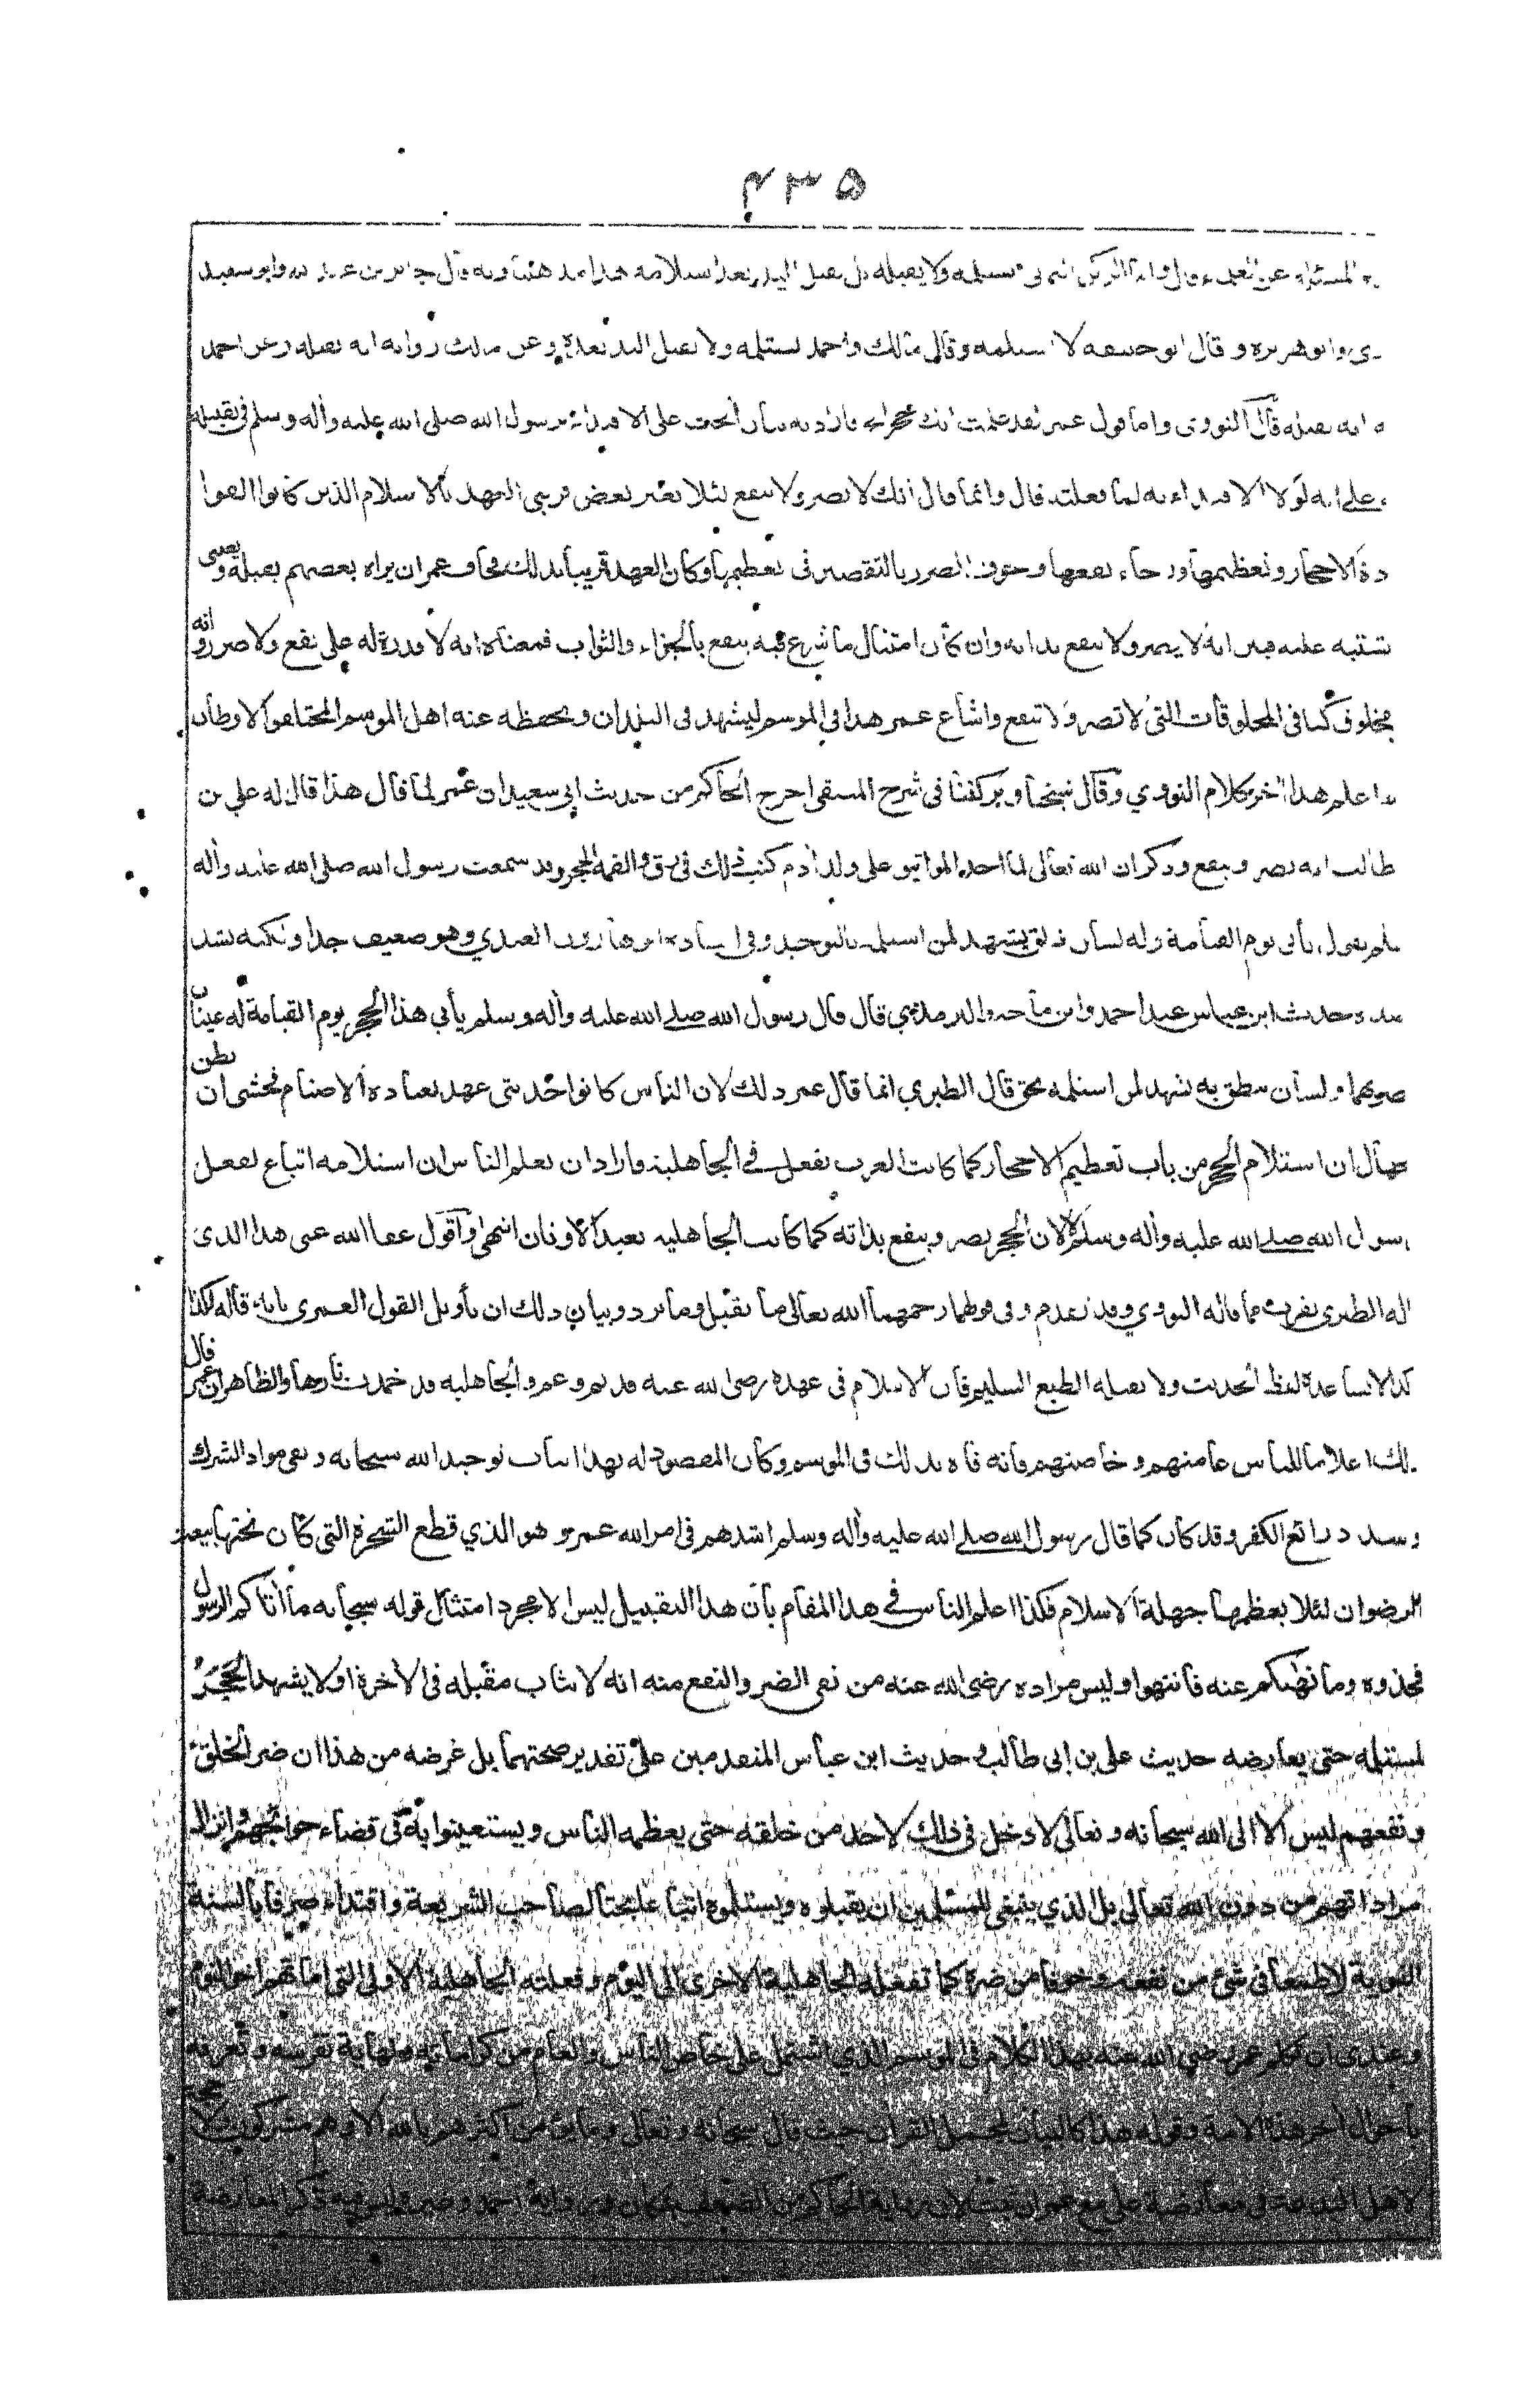 ٤٣٥
عن العلماء قال واما الركن اليماني فيستلمه ولا يقبله بل يقبل اليد بعد استلامه هذا مذهبنا وبه قال جابر بن عبد الله وابو سعيد
وابو هريرة وقال ابو حنيفة لا يستلمه وقال مالك واحمد يستلمه ولا يقبل اليد بعده وعن مالك رواية انه يقبله وعن احمد
انه يقبله قال النووي واما قول عمر لقد علمت انك حجر فاراد به بيان الحث على الاقتداء برسول الله صلى الله عليه وأله وسلم في تقبيله
على انه لولا الاقتداء به لما فعلته قال وانما قال انك لا تضر ولا تنفع لئلا يغتر بعض قريبي العهد بالاسلام الذين كانوا الفوا
الاحجار وتعظيمها ورجاء نفعها وخوف الضرر بالتقصير في تعظيمها وكان العهد قريبا بذلك فخاف عمر ان يراه بعضهم يقبله ويعنى
يشتبه عليه فبين انه لا يضر ولا ينفع بذاته وان كان امتثال ما شرع فيه ينفع بالجزاء والثواب فمعناه انه لا قدرة له على نفع ولا ضر وانه
مخلوق كباقي المخلوقات التي لا تضر ولا تنفع واشاع عمر هذا في الموسم ليشهد في البلدان ويحفظه عنه اهل الموسم المختلفوا الاوطان
اعلم هذا أخر كلام النووي وقال شيخنا وبركتنا في شرح المنتقى اخرج الحاكم من حديث ابي سعيد ان عمر لما قال هذا قال له علي بن
طالب انه يضر وينفع وذكر ان الله تعالى لما اخذ المواثيق على ولد أدم كتب ذلك في رق والقمه الحجر وقد سمعت رسول الله صلى الله عليه وأله
يقول يأتي يوم القيامة وله لسان ذلق يشهد لمن استلمه بالتوحيد وفي اسناده ابو هارون العبدي وهو ضعيف جدا ولكنه يشد
حديث ابن عباس عند احمد وابن ماجه والترمذي قال قال رسول الله صلى الله عليه وأله وسلم يأتي هذا الحجر يوم القيامة له عينان
ولسان ينطق به يشهد لمن استلمه بحق قال الطبري انما قال عمر ذلك لان الناس كانوا حديثي عهد بعبادة الاصنام فخشي ان يظن
ان استلام الحجر من باب تعظيم الاحجار كما كانت العرب تفعل في الجاهلية فاراد ان يعلم الناس ان استلامه اتباع لفعل
رسول الله صلى الله عليه وأله وسلم لا لان الحجر يضر وينفع بذاته كما كانت الجاهلية تعبد الاوثان انتهى واقول عفا الله عني هذا الذي
الطبري يقرب مما قاله النووي وقد تقدم وفي قولهما رحمهما الله تعالى ما يقبل وما يرد وبيان ذلك ان تأويل القول العمري بانه قاله لكذا
كذا لا يساعده لفظ الحديث ولا يقبله الطبع السليم فان الاسلام في عهده رضي الله عنه قد نمو وعم والجاهلية قد خمدت نارها والظاهر ان عمر قال
ذلك اعلاما للناس عامتهم وخاصتهم فانه فاه بذلك في الموسم وكان المقصود له بهذا اثبات توحيد الله سبحانه ونفي مواد الشرك
وسد ذرائع الكفر وقد كان كما قال رسول الله صلى الله عليه وأله وسلم اشدهم في امر الله عمر وهو الذي قطع الشجرة التي كان تحتها بيعة
الرضوان لئلا يعظمها جهلة الاسلام فكذا اعلم الناس في هذا المقام بان هذا التقبيل ليس الا مجرد امتثال قوله سبحانه ما أتاكم الرسول
فخذوه وما نهٰىكم عنه فانتهوا وليس مراده رضي الله عنه من نفي الضر والنفع منه انه لا يثاب مقبله في الأخرة او لا يشهد الحجر
لمستلمه حتى يعارضه حديث علي بن ابي طالب وحديث ابن عباس المتقدمين على تقدير صحتهما بل غرضه من هذا ان ضر الخلق
ونفعهم ليس الا الى الله سبحانه وتعالى لا دخل في ذلك لاحد من خلقه حتى يعظمه الناس ويستعينوا به في قضاء حوائجهم وانزال
مراداتهم من دون الله تعالى بل الذي ينبغي للمسلمين ان يقبلوه ويستلموه اتباعا بحتا لصاحب الشريعة واقتداء صرفا بالسنة
النبوية لا طمعا في شئ من نفعه وخوفا من ضره كما تفعله الجاهلية الاخرى الى اليوم وفعلته الجاهلية الاولى التي
وعندي ان تكلم عمر رضي الله عنه بهذا الكلام في الموسم الذي اشتمل على خاص الناس والعام من كراماته ونهاية تفرسه وتعرفه
باحوال أخر هذه الامة وقوله هذا كالبيان لمجمل القران حيث قال سبحانه وتعالى وما يؤمن اكثرهم بالله الا وهم مشركون ولا حجة
لاهل البدعة في معارضة علي مع عمر ان ثبت لان رواية الحاكم من الضعف بمكان